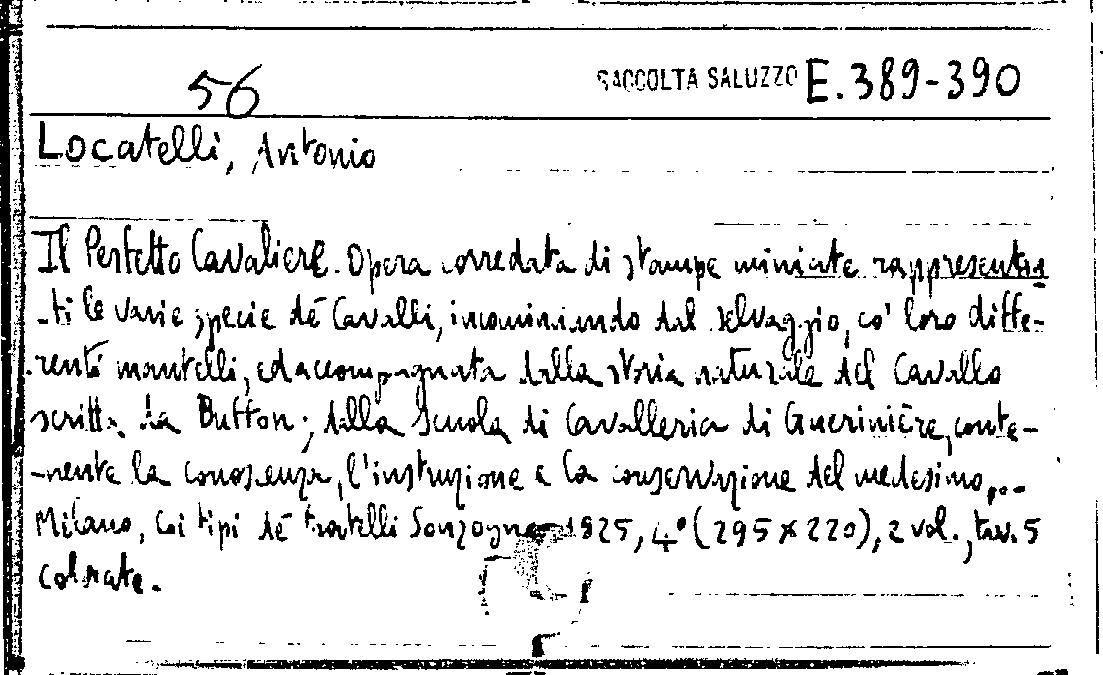 56 RACCOLTA SALUZZO E.389-390
Locatelli, Antonio
Il Perfetto Cavaliere. Opera corredata di stampe miniate rappresentan
-ti le varie specie de' Cavalli, incominciando dal selvaggio, co' loro diffe-
-renti mantelli, ed accompagnata dalla storia naturale del Cavallo
scritta da Buffon; dalla Scuola di Cavalleria di Guerinière, conte-
-nente la conoscenza, l'instruzione e la conservazione del medesimo,...
Milano, coi tipi de' fratelli Sonzogno 1825, 4° (295 x 220), 2 vol., tav. 5
colorate.